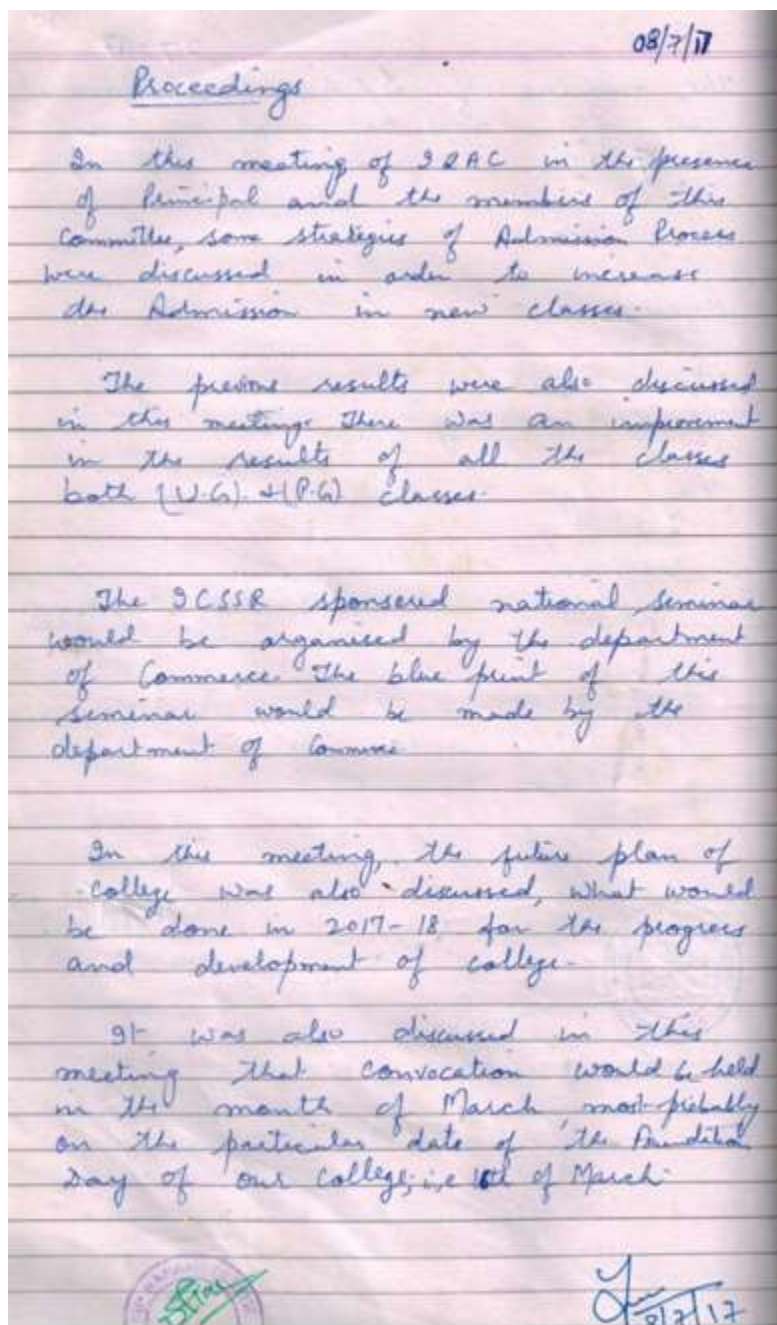 08/7/17
Proceedings
In this meeting of IQAC in the presence
of Principal and the members of this
Committee, some strategies of Admission Process
were discussed in order to increase
the Admission in new classes.
The previous results were also discussed
in this meeting. There was an improvement
in the results of all the classes
both (U.G). &(P.G) classes.
The ICSSR sponsered national seminar
would be organised by the department
of Commerce. The blue print of this
seminar would be made by the
department of Commerce
In this meeting, the future plan of
college was also discussed, what would
be done in 2017-18 for the progress
and development of college.
It was also discussed in this
meeting that convocation would be held
in the month of March, most probably
on the particular date of the Foundation
Day of our College, i.e of March.
8/7/17